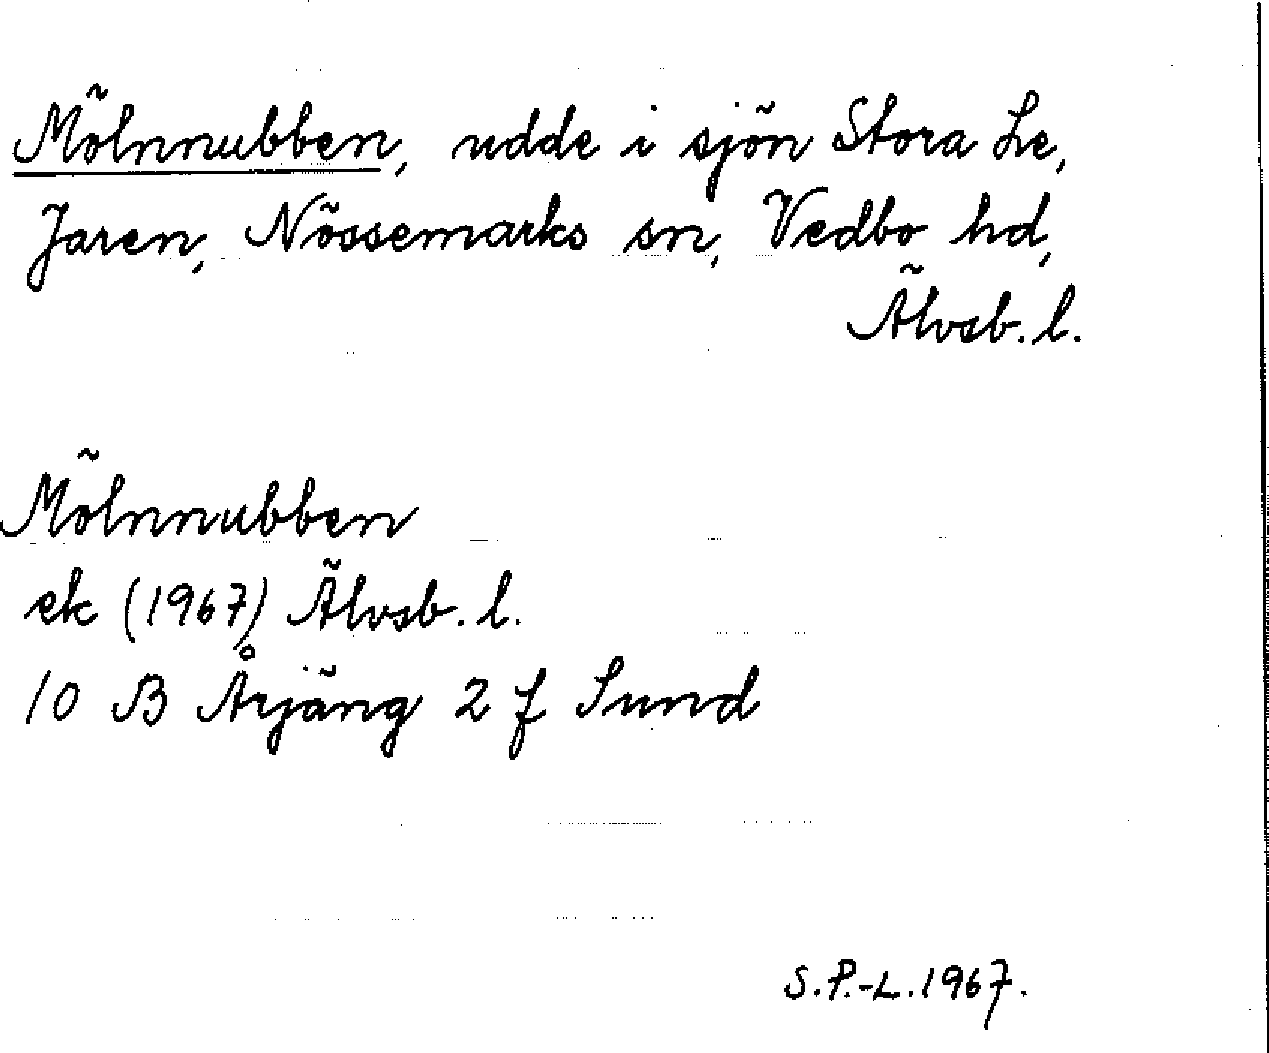 Mölnnubben, udde i sjön Stora Le,
Jaren, Nössemarks sn, Vedbo hd,
Älvsb. l.
Mölnnubben
ek (1967) Älvsb. l.
10 B Årjäng 2 f Sund
S.P.-L. 1967.